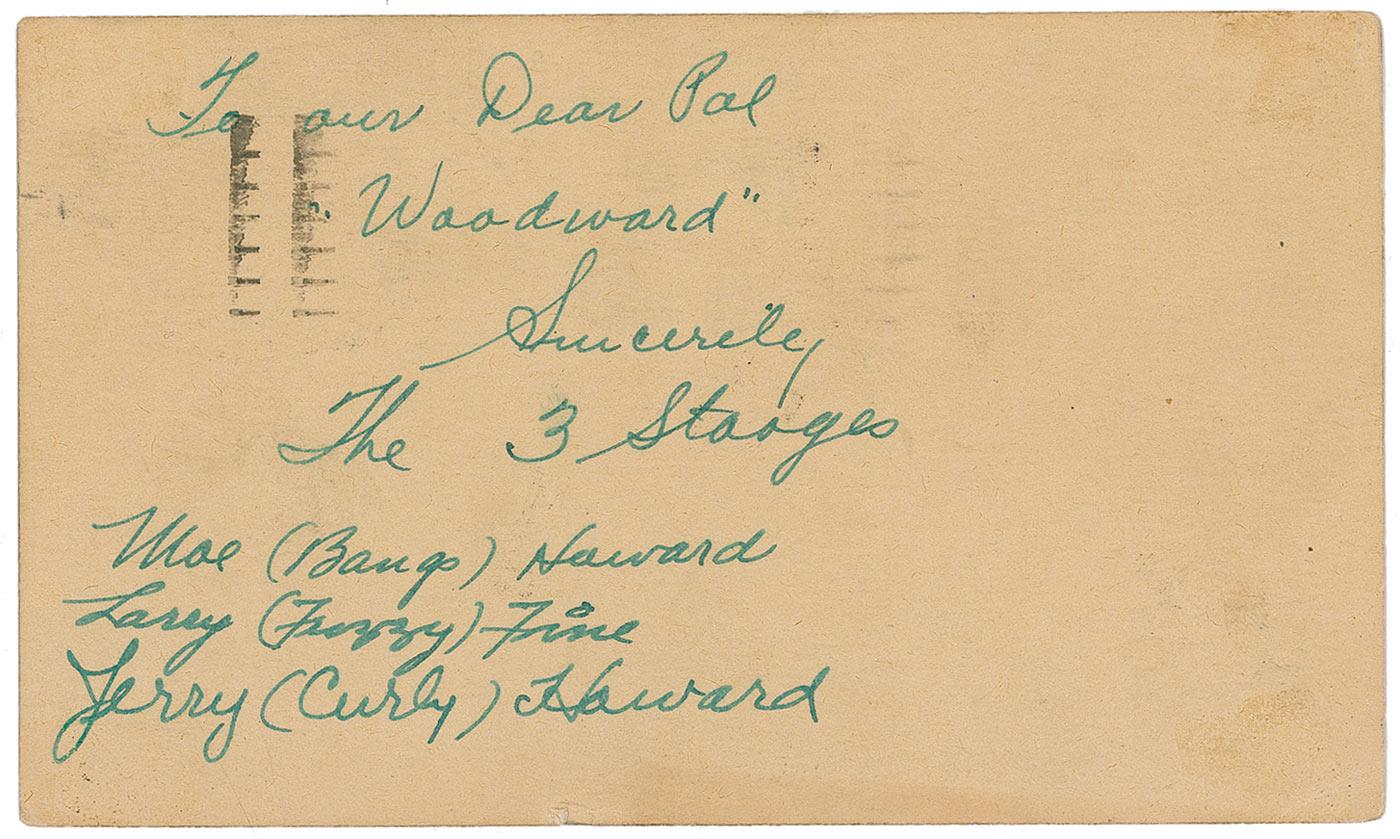 To our Dear Pal
"Woodward"
Sincerely
The 3 Stooges
Moe (Bangs) Howard
Larry (Fuzzy) Fine
Jerry (Curly) Howard